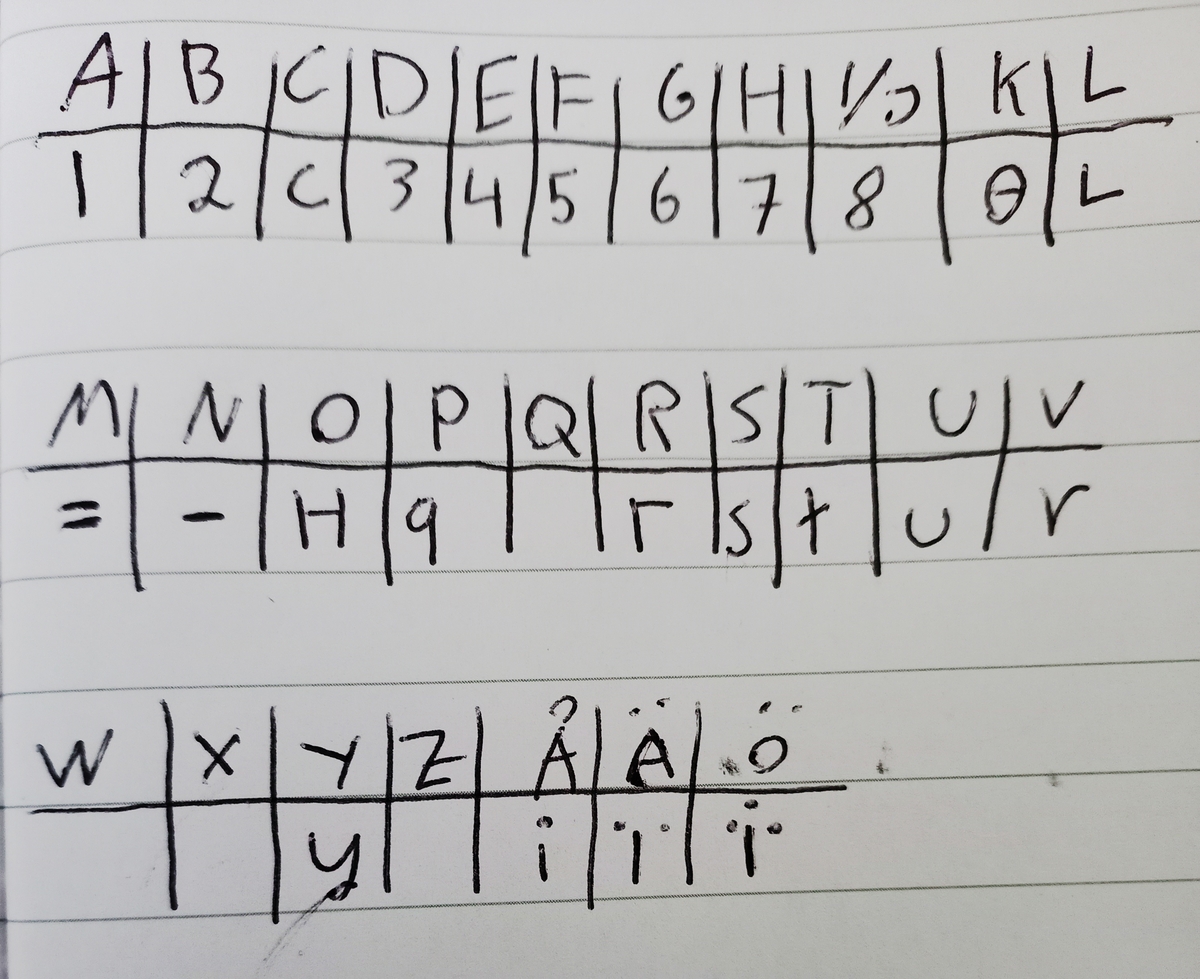 A B C D E F G H I/J K L
1 2 C 3 4 5 6 7 8 θ L
M N O P Q R S T U V
= - H q r s t u r
W X Y Z Å Ä Ö
y i ï ï